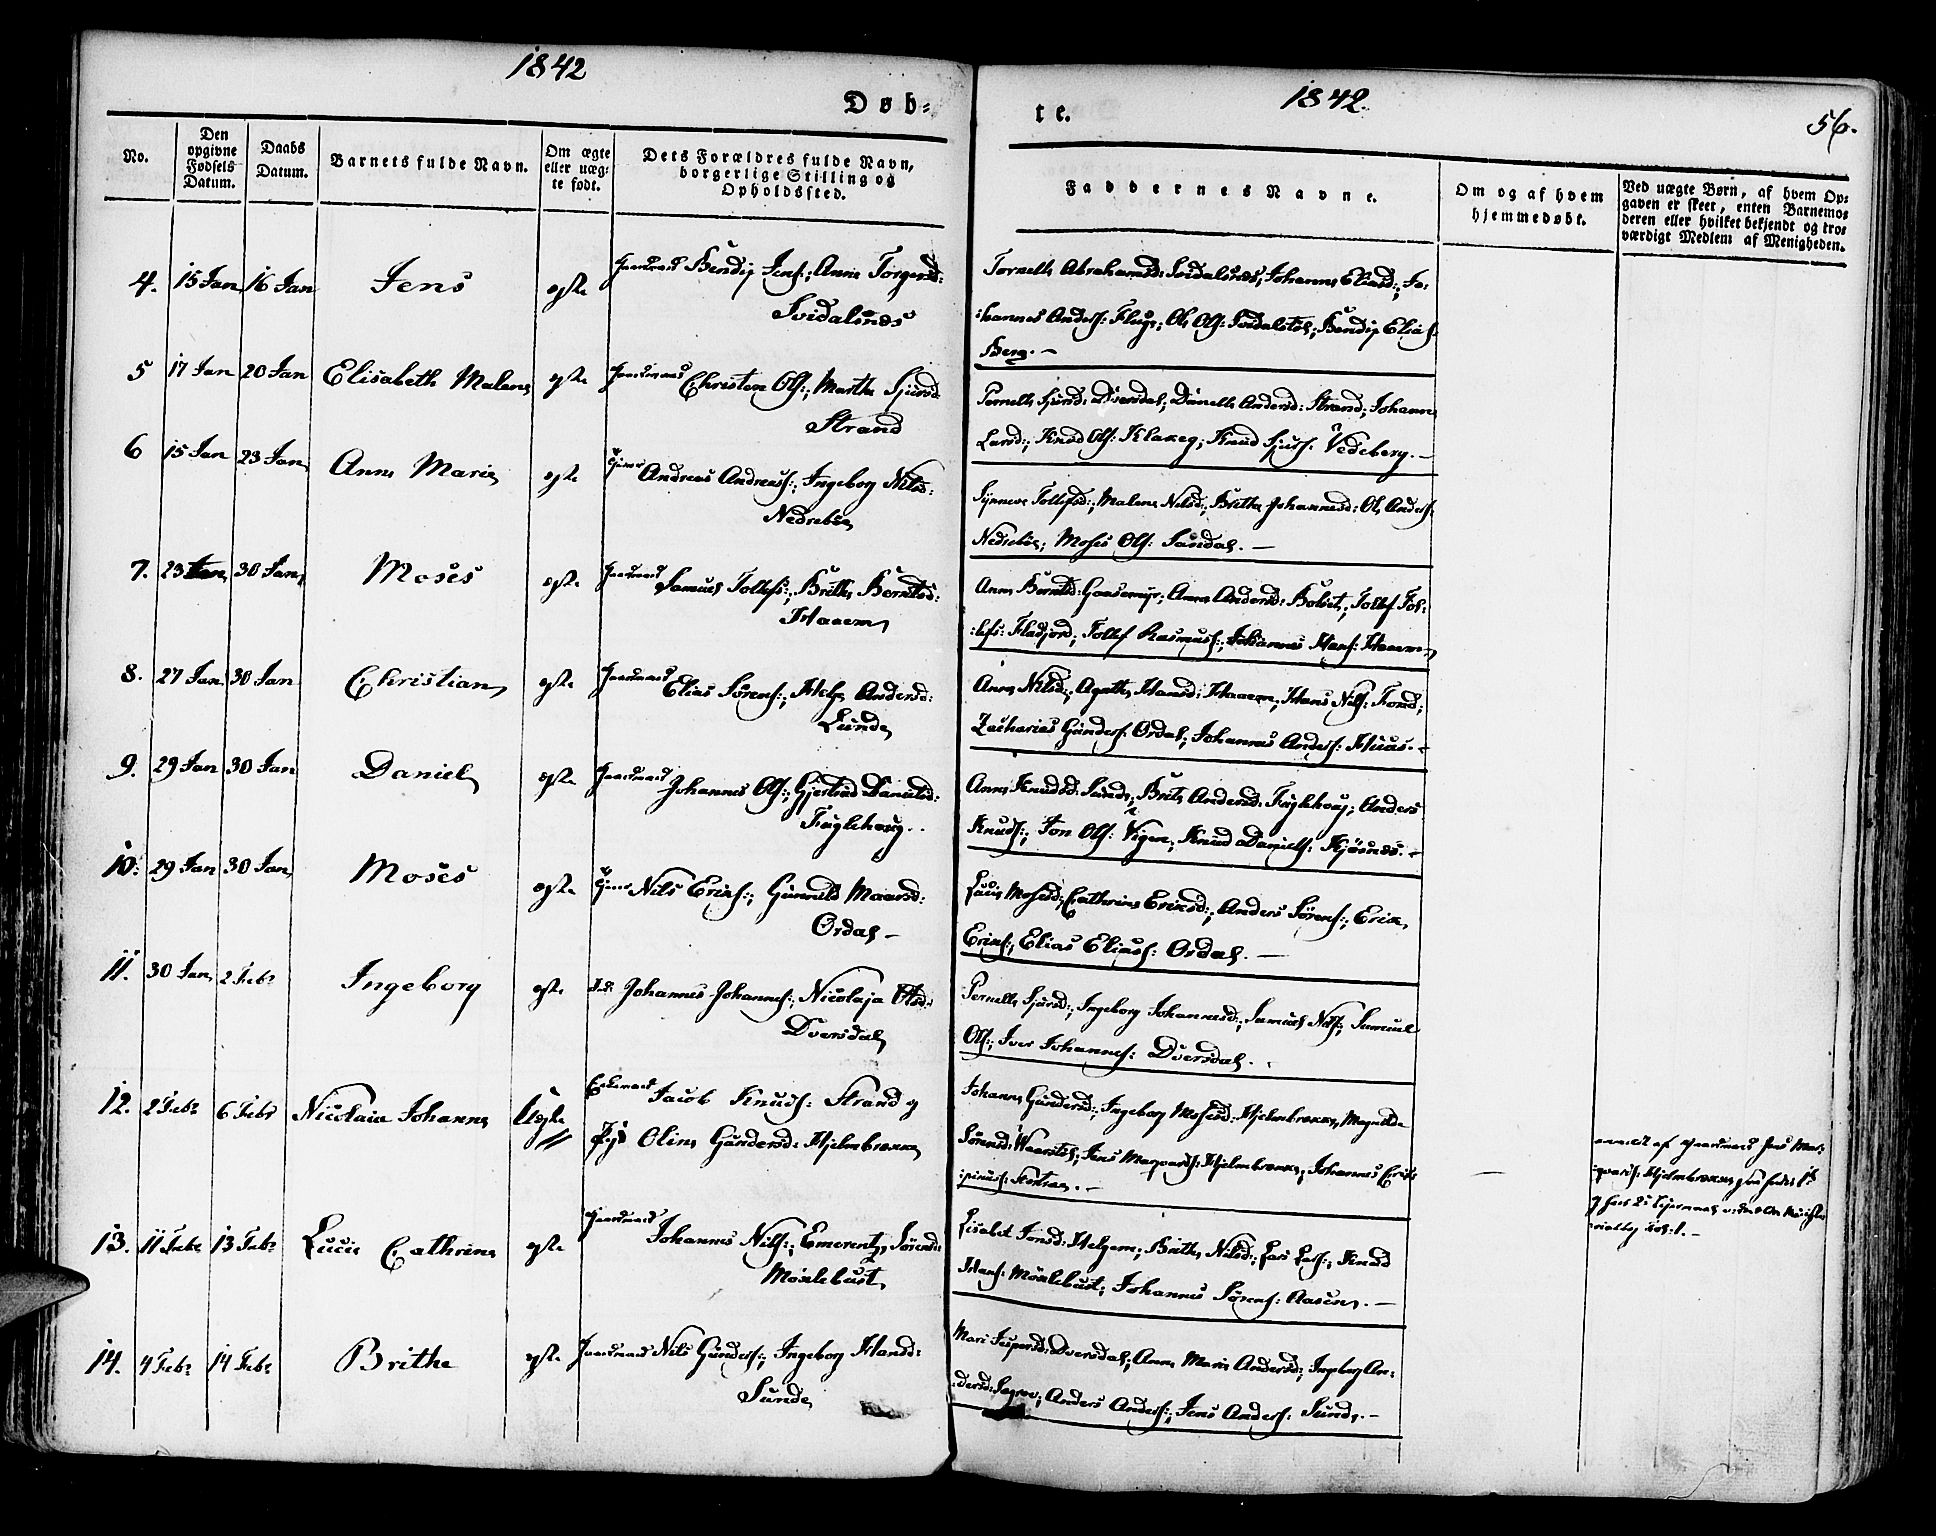 1842
1842.
56.
Døb-
te.
No.
Den opgivne Fødsels Datum.
Daabs Datum.
Barnets fulde Navn.
Om ægte eller uægte født.
Dets Forældres fulde Navn, borgerlige Stilling og Opholdssted.
Faddernes Navne.
Om og af hvem hjemmedøbt.
Ved uægte Børn, af hvem Op-
gaven er skeet, enten Barnemo-
deren eller hvilket bekjendt og tro-
værdigt Medlem af Menigheden.
4. 15 Jan 16 Jan Jens egte Gaardmand Bendix Jens:, Anne Torgersd:
Svidalsnæs
Pernelle Abrahamsd: Svidalsnæs, Johanne Eliasd:, Jo-
:hannes Anders: Fluge, Ole Ols: Svidalstøl, Bendix Elias:
Berg. —
5 17 Jan 20 Jan Elisabeth Malene egte Gaardmand Christen Ols:, Marthe Sjursd
Strand
Pernelle Sjursd: Dversdal, Danelle Andersd: Strand, Johanne
Larsd:, Knud Ols: Klakeg, Knud Sjurs: Vedeberg. —
6 15 Jan 23 Jan Anne Marie egte Andreas Andreas:, Ingeborg Nilsd:
Nedrebøe
Synneve Tollefsd:, Malene Nilsd:, Brithe Johannesd: Ole Anders:
Nedrebøe, Moses Ols: Sandal. —
7. 23 Jan 30 Jan Moses egte Gaardmand Samuel Tollefs:, Brithe Berntsd:
Haaem
Anne Berntsd: Gaasemyr, Anne Andersd: Bolset, Tollef Tol-
:lefs: Fladjord, Tollef Rasmus:, Johannes Hans: Haaem
8. 27 Jan 30 Jan Christian egte Gaardmand Elias Sørens:, Helge Andersd:
Lunde
Anne Nilsd:, Agathe Hansd: Haaem, Hans Nils: Fond,
Zacharias Gunders: Ordal, Johannes Anders: Huus. —
9. 29 Jan 30 Jan Daniel egte Gaardmand Johannes Ols:, Gjertrud Danielsd:
Fuglehoug.
Anne Knudsd: Sunde, Brite Andersd: Fuglehoug, Anders
Knuds:, Jon Ols: Vigen, Knud Daniels: Kjøsnes. —
10. 29 Jan 30 Jan Moses egte Nils Eriks:, Gunnild Maarsd:
Ordal —
Lucie Mosesd:, Cathrine Eriksd:, Anders Sørens:, Erik
Eriks:, Elias Elias: Ordal. —
11. 30 Jan 2 Feb: Ingeborg egte Johannes Johannes:, Nicolaja Olsd:
Dversdal
Pernelle Sjursd:, Ingeborg Johannesd:, Samuel Nils:, Samuel
Ols:, Iver Johannes: Dversdal.
12. 2 Feb: 6 Feb: Nicolaia Johanne Uegte Enkemand Jacob Knuds: Strand og
Pige Oline Gundersd: Hjelmbrekke
Johanne Gundersd:, Ingeborg Mosesd: Hjelmbrekke, Magnilde
Sørensd: Waarstøl, Jens Marqvards: Hjelmbrekke, Johannes
—
anmeldt af Gaardmand Jens Mar-
qvards: Hjelmbrekke
13. 11 Feb: 13 Feb: Lucie Cathrine egte Gaardmand Johannes Nils:, Emerentze Sørensd:
Møklebust
Lisabet Jonsd: Helgem, Brithe Nilsd:, Lars Lars:, Knud
Hans: Møklebust, Johannes Sørens: Aasen. —
14. 4 Feb: 14 Feb: Brithe egte Gaardmand Nils Gunders:, Ingeborg Hansd:
Sunde
Mari Jespersd: Dversdal, Anne Marie Andersd:, Ingeborg An-
:dersd: Segrov, Anders Anders:, Jens Anders: Sunde. —